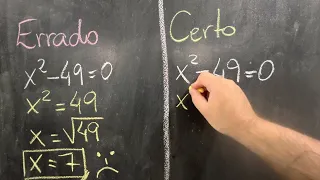 Errado
x²-49=0
x²=49
x=√49
x=7
Certo
x²-49=0
x